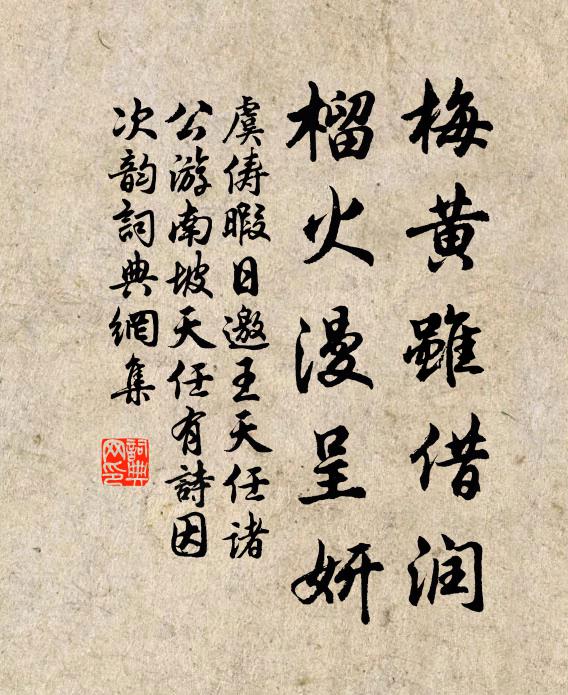 梅黄雖借润
榴火漫呈妍
虞儔暇日邀王天任诸
公游南坡天任有詩因
次韵詞典網集
詞典网印